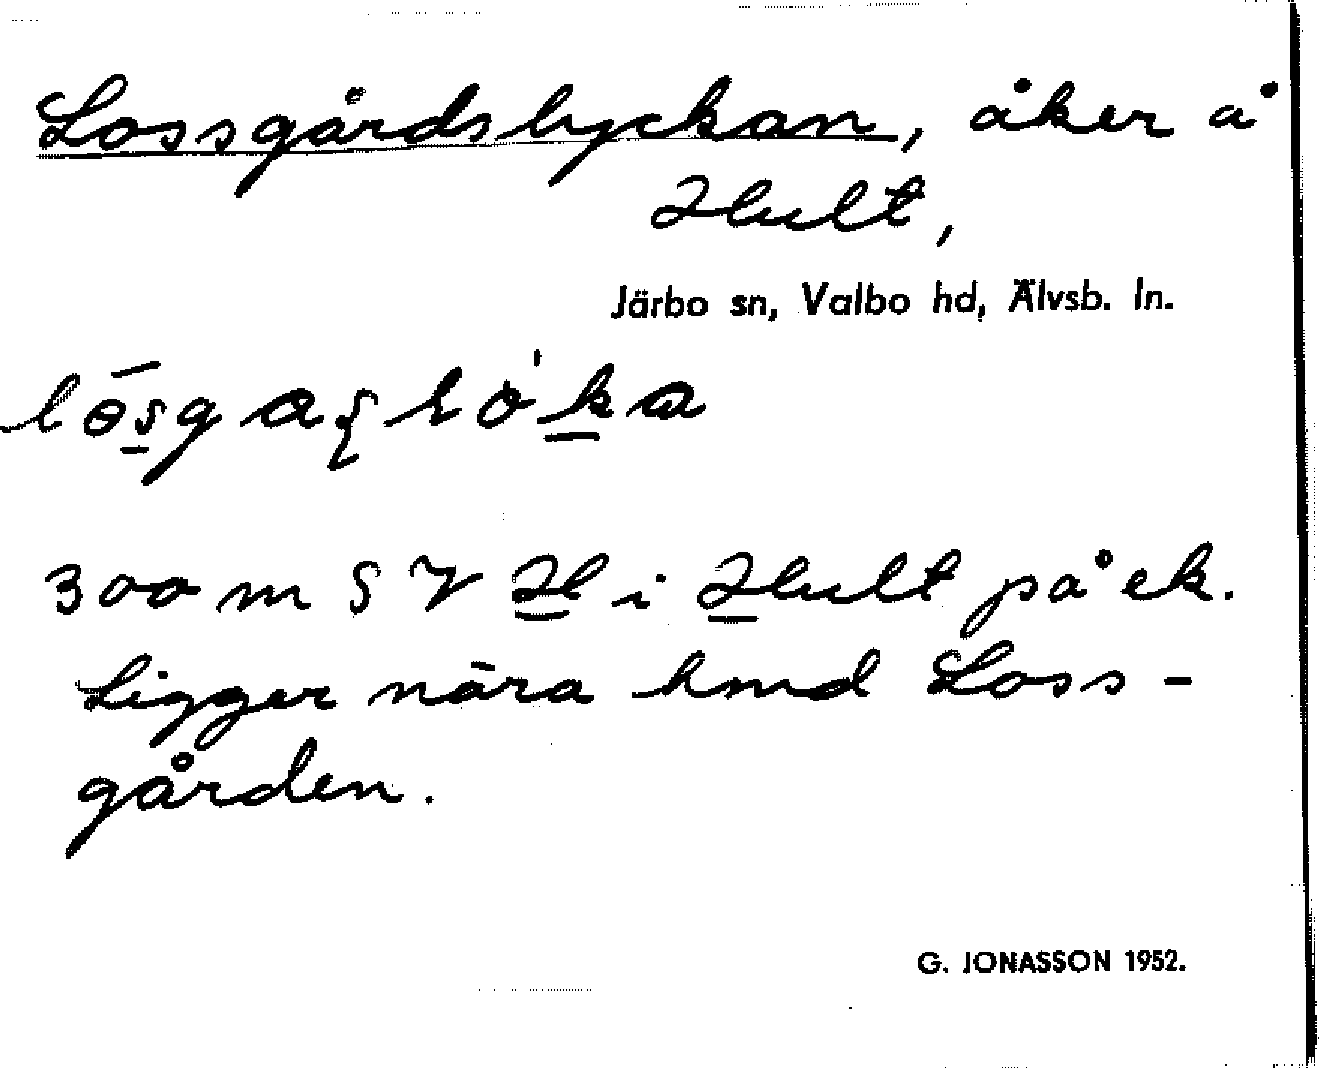 Lossgårdslyckan, åker å
Hult,
Järbo sn, Valbo hd, Älvsb. ln.
300 m SV H i Hult på ek.
Ligger nära hmd Loss-
gården.
G. JONASSON 1952.